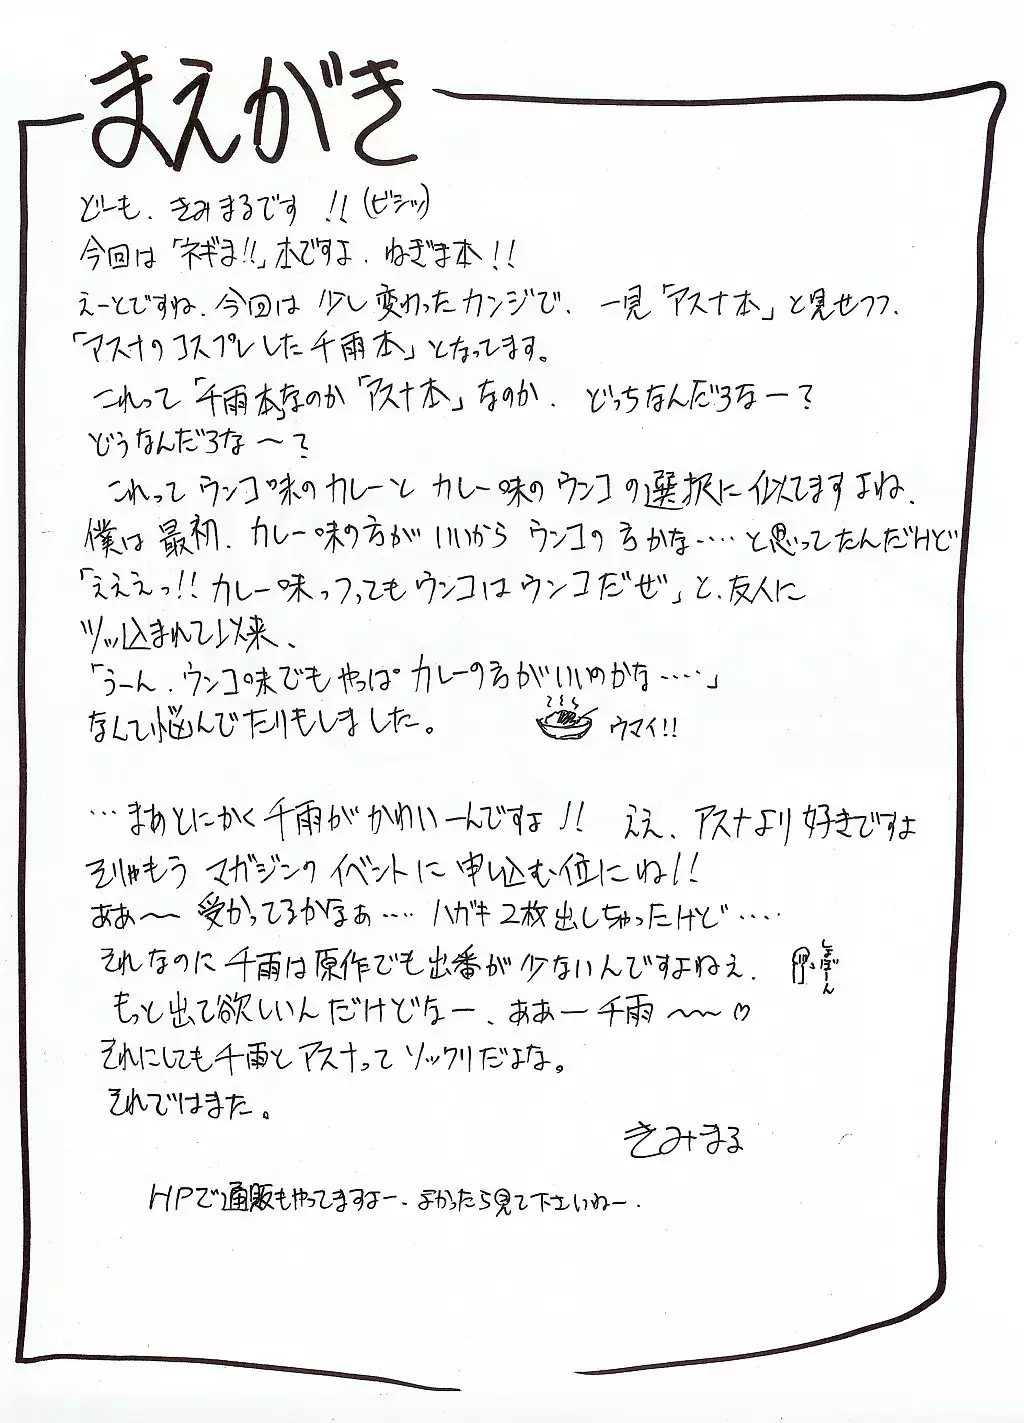 まえがき
どーも、きみまるです!!(ビシッ)
今回は「ネギま!!」本ですよ、ねぎま本!!
えーとですね、今回は少し変わったカンジで、一見「アスナ本」と見せつつ、
「アスナのコスプレした千雨本」となってます。
これって「千雨本」なのか「アスナ本」なのか、どっちなんだろなー?
どうなんだろな〜?
これってウンコ味のカレーとカレー味のウンコの選択に似てますよね、
僕は最初、カレー味の方がいいからウンコの方かな‥‥と思ってたんだけど
「えええっ!!カレー味っつってもウンコはウンコだぜ」と、友人に
ツッ込まれて以来、
「うーん、ウンコ味でもやっぱカレーの方がいいのかな‥‥」
なんて悩んでたりもしました。
ウマイ!!
…まあとにかく千雨がかわいーんですよ!! ええ、アスナより好きですよ
そりゃもうマガジンのイベントに申し込む位にね!!
ああ〜〜受かってるかなぁ‥‥ハガキ2枚出しちゃったけど‥‥
それなのに千雨は原作でも出番が少ないんですよねぇ、
しょぼーん
もっと出て欲しいんだけどなー、ああー千雨〜〜♡
それにしても千雨とアスナってソックリだよな。
それではまた。
きみまる
HPで通販もやってますよー、よかったら見て下さいねー、